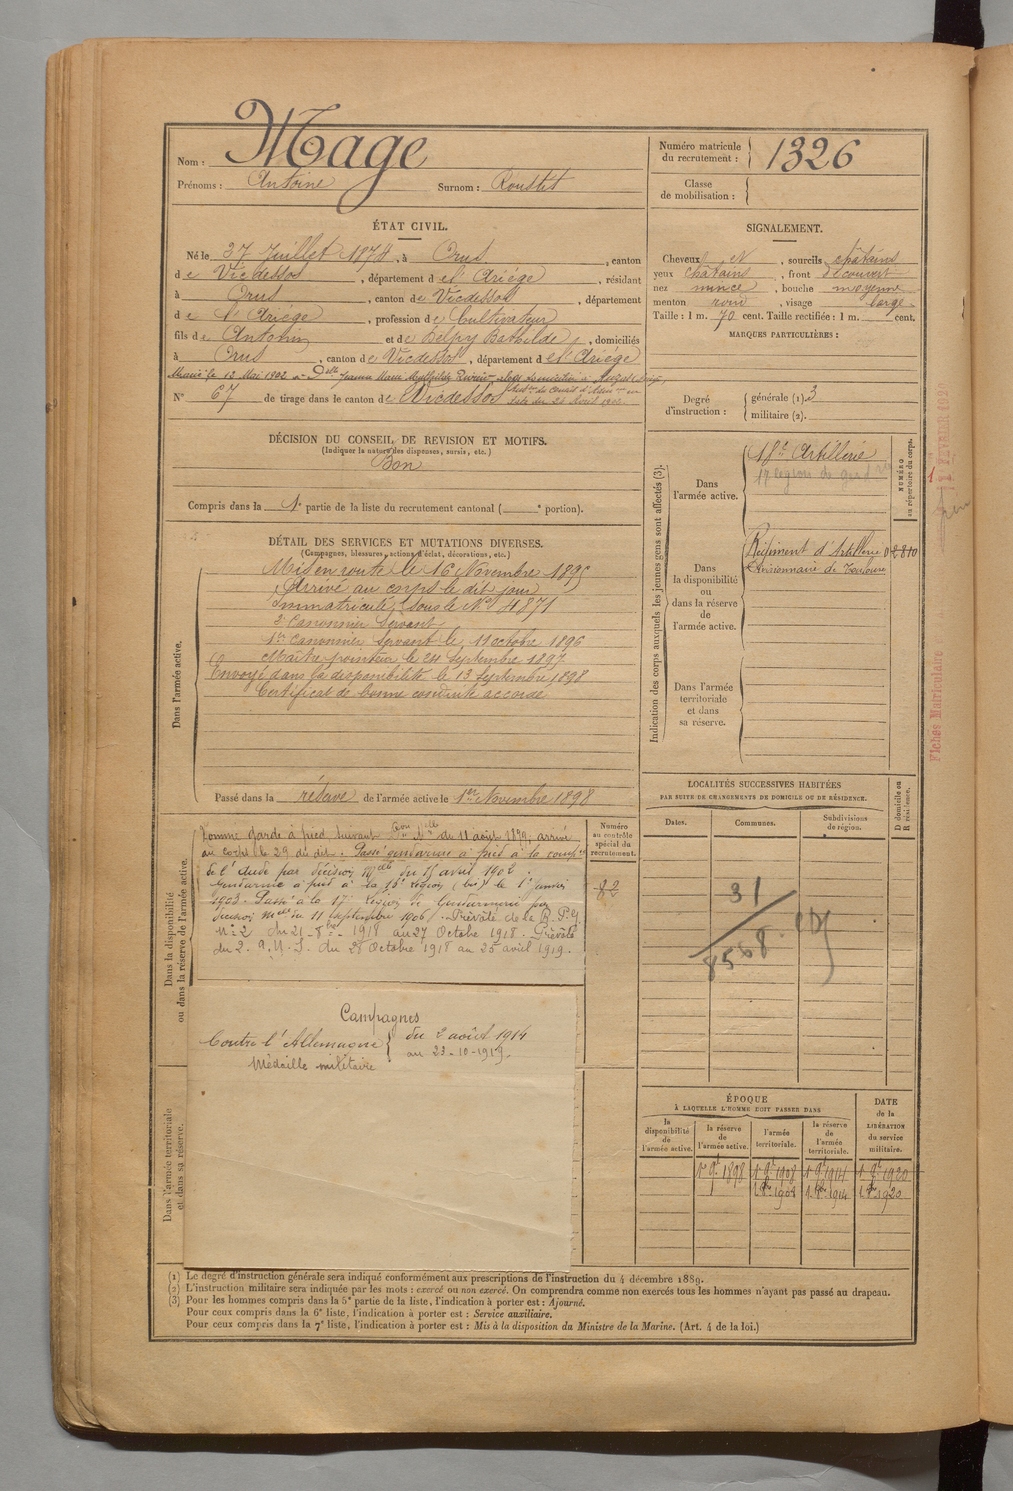 Nom : Mage
Prénoms : Antoine Surnom : Roustit
Numéro matricule du recrutement : 1326
Classe de mobilisation :
ÉTAT CIVIL.
Né le 27 Juillet 1874, à Orus, canton
de Vicdessos, département de l'Ariège, résidant
à Orus, canton de Vicdessos, département
de l'Ariège, profession de Cultivateur
fils de Antonin et de Delpy Bathilde, domiciliés
à Orus, canton de Vicdessos, département de l'Ariège
Marié le 12 Mai 1902 à Dlle Jeanne Marie
N° 67 de tirage dans le canton de Vicdessos
SIGNALEMENT.
Cheveux et, sourcils châtains
yeux châtains, front découvert
nez mince, bouche moyenne
menton rond, visage large
Taille : 1 m. 70 cent. Taille rectifiée : 1 m. cent.
MARQUES PARTICULIÈRES :
Degré d'instruction : générale (1). 3
militaire (2).
DÉCISION DU CONSEIL DE REVISION ET MOTIFS.
(Indiquer la nature des dispenses, sursis, etc.)
Bon
Compris dans la 1e partie de la liste du recrutement cantonal ( e portion).
DÉTAIL DES SERVICES ET MUTATIONS DIVERSES.
(Campagnes, blessures, actions d'éclat, décorations, etc.)
Dans l'armée active.
Mis en route le 16 Novembre 1895
Arrivé au corps le dit jour
Immatriculé sous le N° 4871
2e Canonnier Servant
1er Canonnier Servant le 11 octobre 1896
Maître pointeur le 24 Septembre 1897
Envoyé dans la disponibilité le 13 Septembre 1898
Certificat de bonne conduite accordé
Passé dans la réserve de l'armée active le 1er Novembre 1898
Indication des corps auxquels les jeunes gens sont affectés (3).
NUMÉRO au répertoire du corps.
Dans l'armée active.
18e Artillerie
17 légion de gend
Dans la disponibilité ou dans la réserve de l'armée active.
Régiment d'Artillerie 02810
Divisionnaire de Toulouse
Dans l'armée territoriale et dans sa réserve.
LOCALITÉS SUCCESSIVES HABITÉES
PAR SUITE DE CHANGEMENTS DE DOMICILE OU DE RÉSIDENCE.
Dates.
Communes.
Subdivisions de région.
D domicile ou R résidence.
31
8568
Dans la disponibilité ou dans la réserve de l'armée active.
Nommé garde à pied suivant du 11 août 1899, arrivé
au corps le 29 du dit. Passé gendarme à pied à la compie
de l'Aude par décision Mlle du 15 avril 1902.
Gendarme à pied à la 16e Région (bis) le 1er
1903. Passé à la 17e Légion de Gendarmerie par
décision Mlle du 11 Septembre 1906. Prévôté de la
N° 2 du 21 1918 au 27 Octobre 1918. Prévôté
du 2 du 28 Octobre 1918 au 25 avril 1919.
Numéro au contrôle spécial du recrutement.
82
Campagnes
Contre l'Allemagne du 2 août 1914
au 23-10-1919.
Médaille militaire
Dans l'armée territoriale et dans sa réserve.
ÉPOQUE
À LAQUELLE L'HOMME DOIT PASSER DANS
la disponibilité de l'armée active.
la réserve de l'armée active.
l'armée territoriale.
la réserve de l'armée territoriale.
DATE de la LIBÉRATION du service militaire.
1898 1908 1914 1920
1908 1914 1920
(1) Le degré d'instruction générale sera indiqué conformément aux prescriptions de l'instruction du 4 décembre 1889.
(2) L'instruction militaire sera indiquée par les mots : exercé ou non exercé. On comprendra comme non exercés tous les hommes n'ayant pas passé au drapeau.
(3) Pour les hommes compris dans la 5e partie de la liste, l'indication à porter est : Ajourné.
Pour ceux compris dans la 6e liste, l'indication à porter est : Service auxiliaire.
Pour ceux compris dans la 7e liste, l'indication à porter est : Mis à la disposition du Ministre de la Marine. (Art. 4 de la loi.)
Fiches Matriculaire